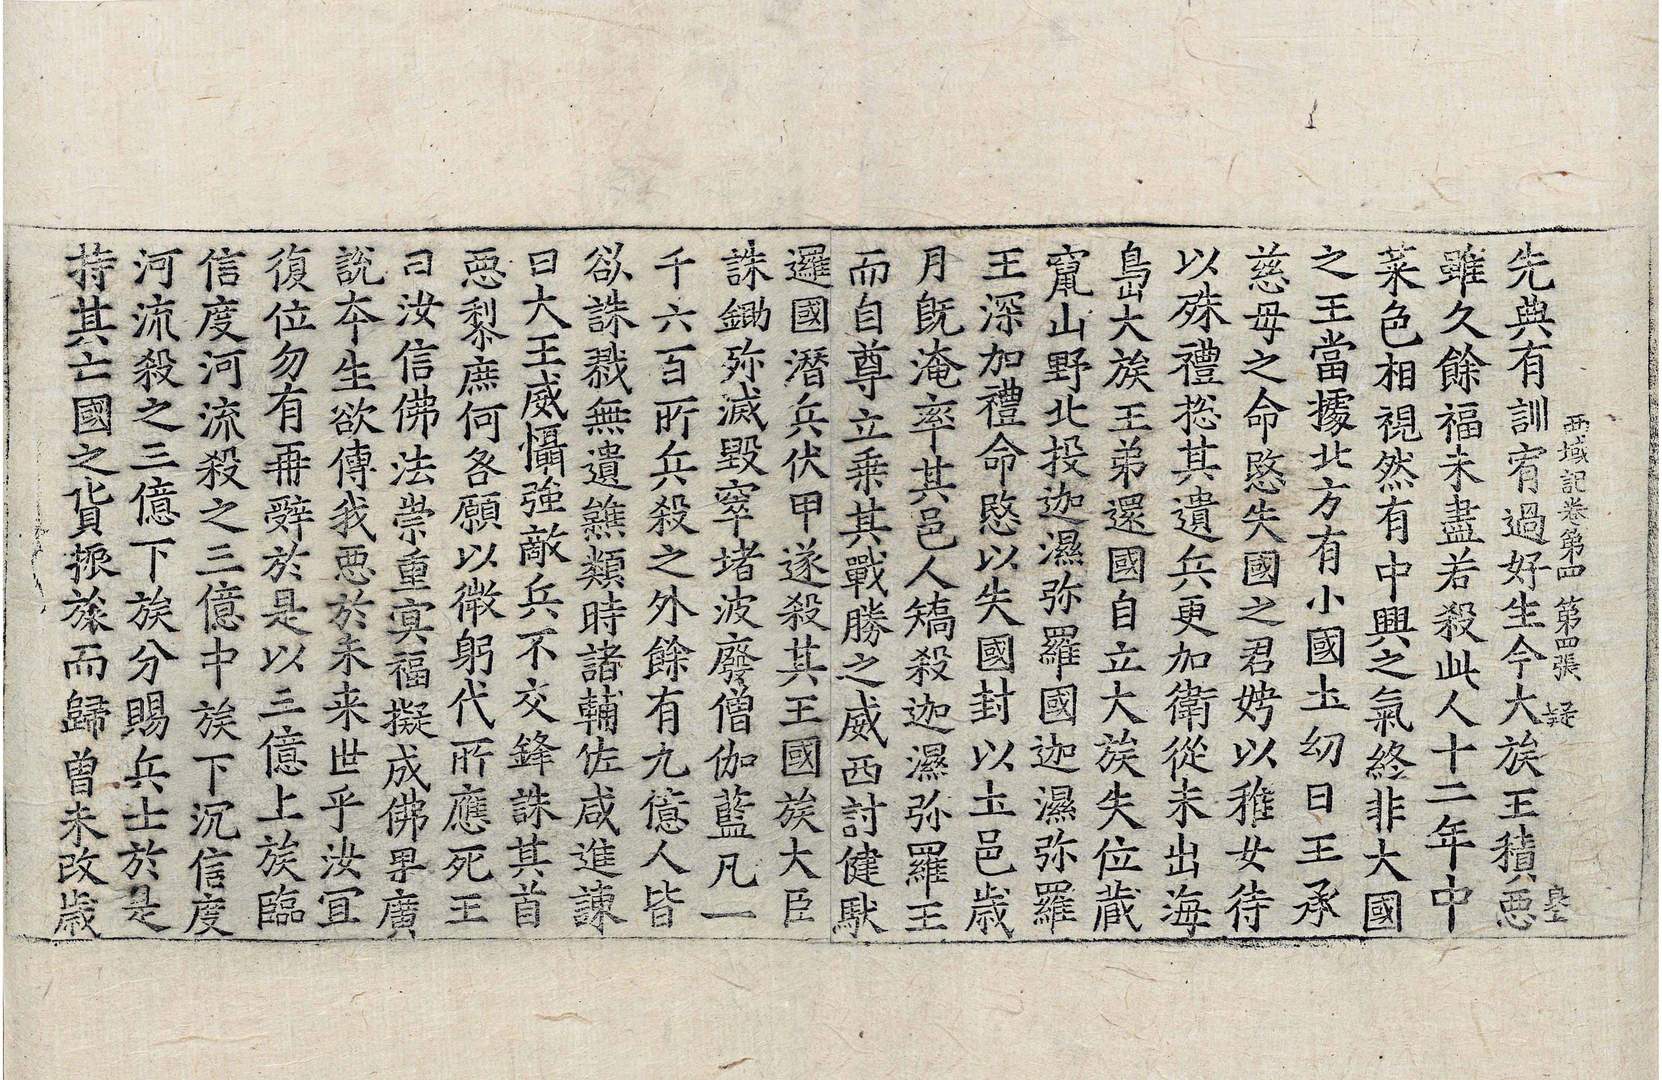 西域記卷第四 第四張 疑
先典有訓宥過好生今大族王積惡
雖久餘福未盡若殺此人十二年中
菜色相視然有中興之氣終非大國
之王當據北方有小國土幼日王承
慈母之命愍失國之君娉以稚女待
以殊禮揔其遺兵更加衛從未出海
島大族王弟還國自立大族失位藏
竄山野北投迦濕弥羅國迦濕弥羅
王深加禮命愍以失國封以土邑歲
月旣淹率其邑人矯殺迦濕弥羅王
而自尊立乘其戰勝之威西討健馱
邏國潛兵伏甲遂殺其王國族大臣
誅鋤殄滅毀窣堵波廢僧伽藍凡一
千六百所兵殺之外餘有九億人皆
欲誅戮無遺䉤類時諸輔佐咸進諫
曰大王威懾強敵兵不交鋒誅其首
惡黎庶何咎願以微躬代所應死王
曰汝信佛法崇重冥福擬成佛果廣
說本生欲傳我惡於未來世乎汝宜
復位勿有再辭於是以三億上族臨
信度河流殺之三億中族下沉信度
河流殺之三億下族分賜兵士於是
持其亡國之貨振旅而歸曾未改歲